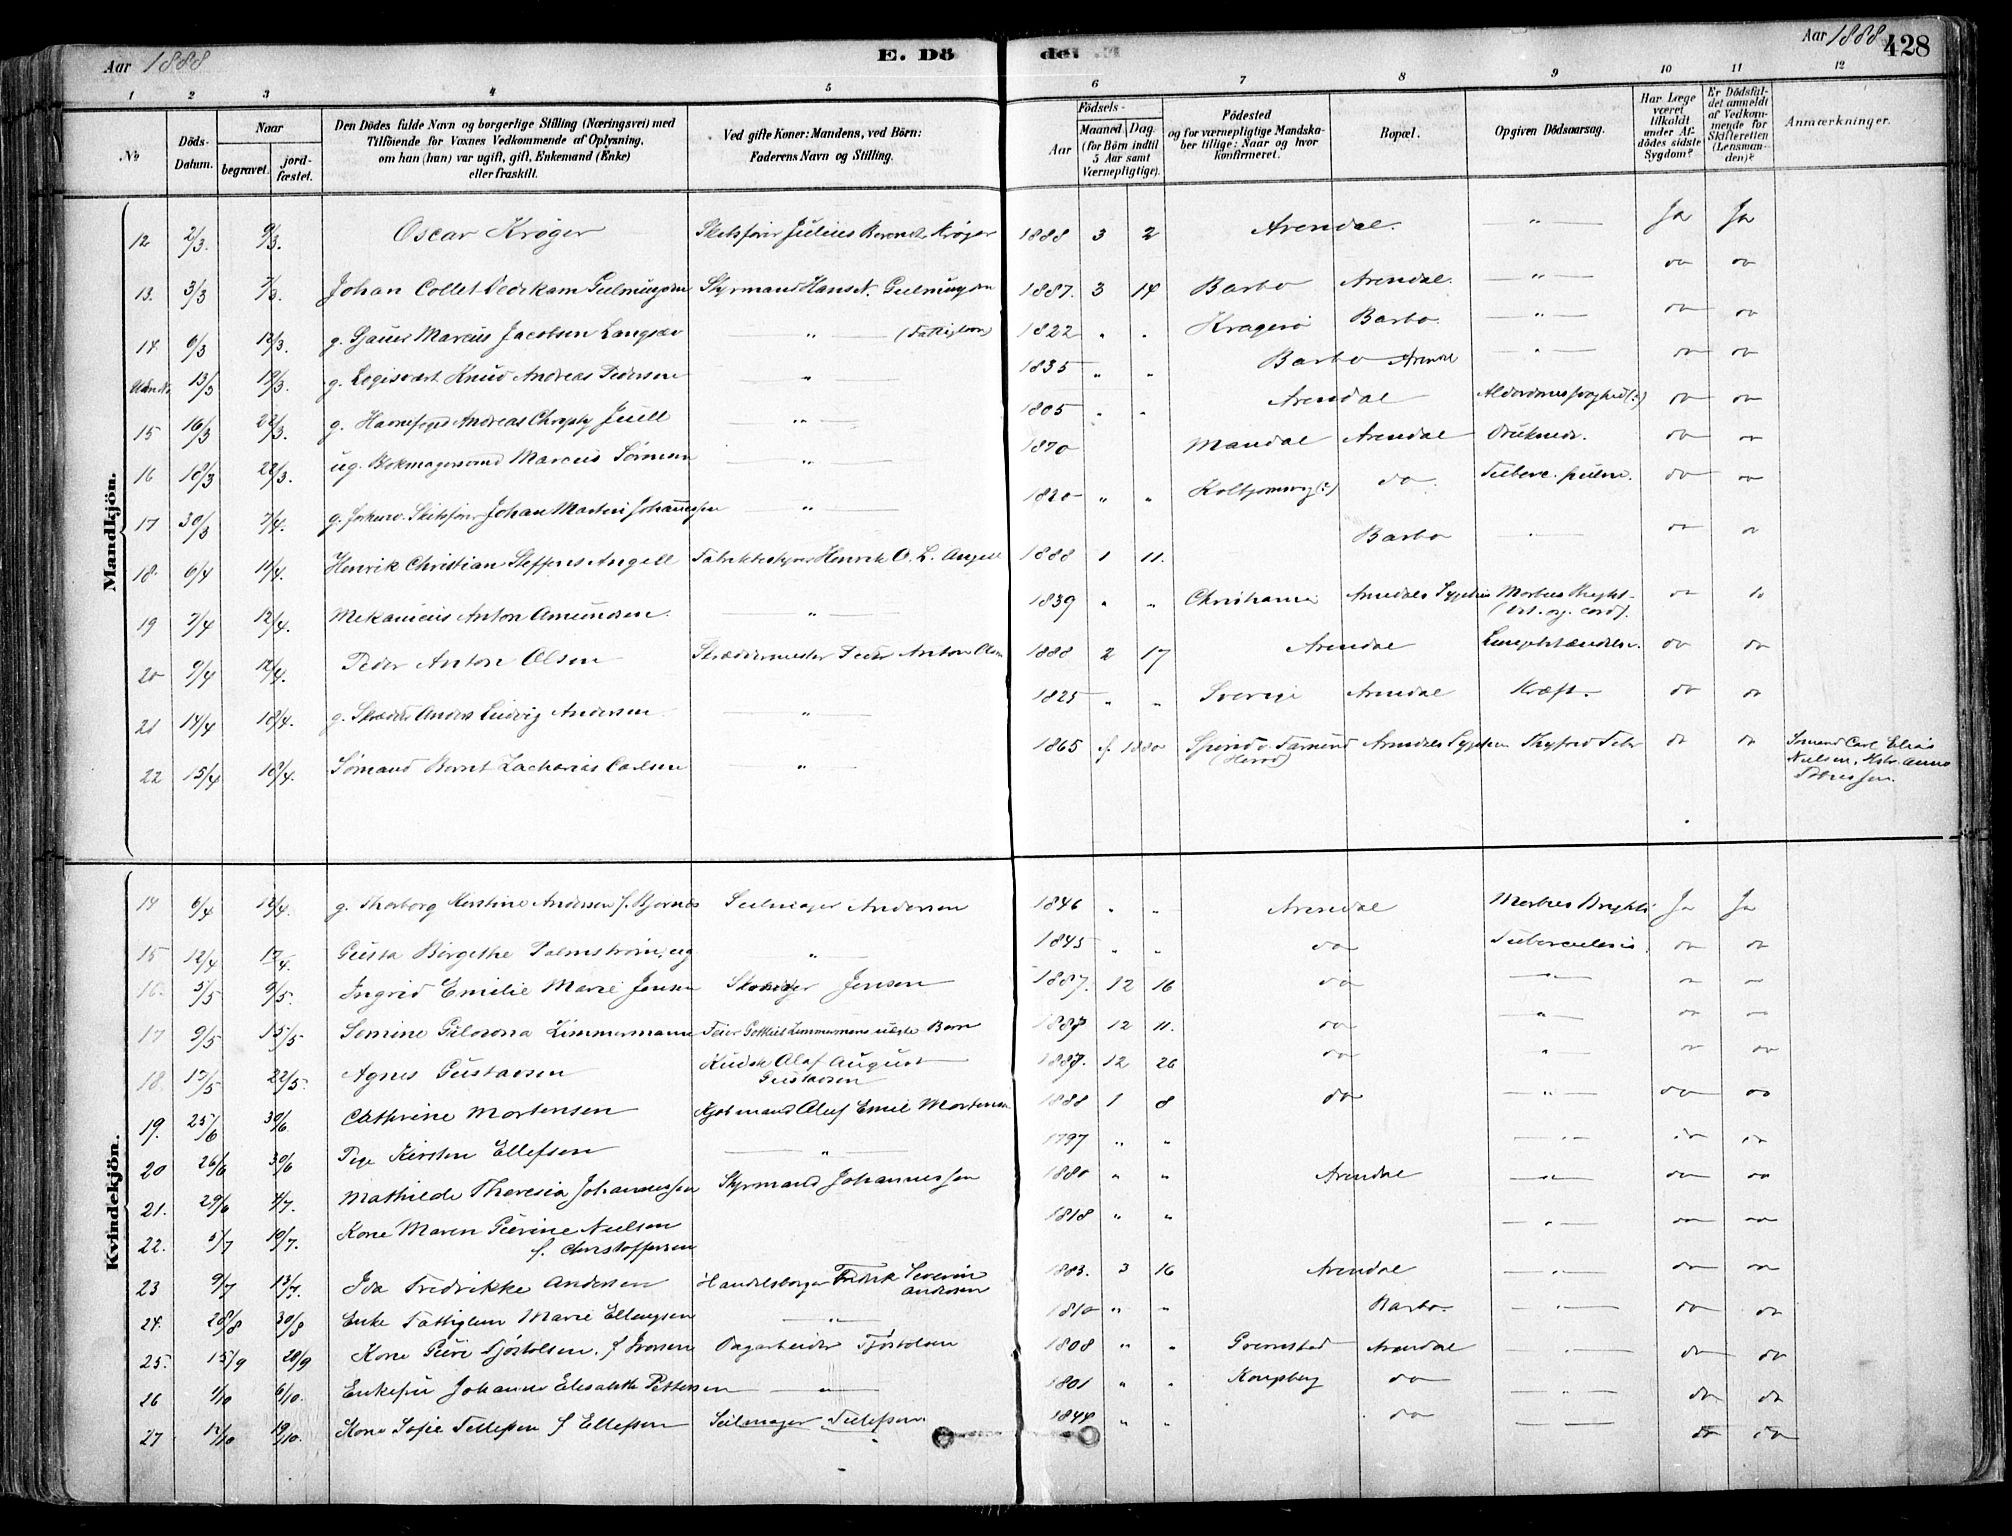 Aar 1888
E. Dö
de.
Aar 1888
128
1 2 3 4 5 6 7 8 9 10 11 12
No
Döds-Datum.
Naar
begravet.
jord-fæstet.
Den Dödes fulde Navn og borgerlige Stilling (Næringsvei) med
Tilföiende for Voxnes Vedkommende af Oplysning,
om han (hun) var ugift, gift, Enkemand (Enke)
eller fraskilt.
Ved gifte Koner: Mandens, ved Börn:
Faderens Navn og Stilling.
Födsels-
Aar
Maaned. Dag.
(for Börn indtil
5 Aar samt
Værnepligtige).
Födested
og for værnepligtige Mandska-
ber tillige: Naar og hvor
konfirmeret.
Bopæl.
Opgiven Dödsaarsag.
Har Læge
været
tilkaldt
under Af-
dödes sidste
Sygdom?
Er Dödsfal-
det anmeldt
af Vedkom-
mende for
Skifteretten
(Lensman-
den)?
Anmærkninger.
Mandkjön.
12 2/3. 9/3. Oscar Krøger Skibsfører Julius Berendt Krøger 1888 3 2 Arendal. " Ja Ja
13. 3/3 7/3. Johan Collet Vedskam Gulmugsen Styrmand Hans N. Gulmugsen 1887. 3 14 Barbo Arendal. " do do
14. 6/3 12/3. g. Marcus Jacobsen Langsæ " (Fattiglem) 1822 " " Kragerø Barbo. " do do
13/3 19/3. g. Logisvært Knud Andreas Pedersen " 1835 " " Barbo Arendal " do do
15 16/3 22/3. g. Havnefoged Andreas Juell " 1805 " " Arendal do do
16 18/3 22/3. ug. Marcus " 1870 Mandal Arendal Druknede. do do
17 30/3 7/4. g. Skibsfører Johan Martin Johannessen " 1820 " " do. Tuberc. pulm. do do
18. 6/4 11/4. Henrik Christian Steffens Angell Henrik O. L. Angell 1888 1 11. Barbo " do do
19 7/4 12/4. Mekanicus Anton Amundsen. " 1839 " " Christiania Arendals Sygehus Morbus Bright. do do
20 9/4 12/4. Peder Anton Olsen Skræddermester Peder Anton Olsen 1888 2 17 Arendal do do
21 14/4 18/4. g. Skræder Anders Ludvig Andersen. " 1825 " " Sverige Arendal Kræft. do do
22 15/4 18/4. Sømand Bernt Zacharias Carlsen " 1865 f. 1880 Arendals Sygehus Thyfoid Feber do do Sømand Carl Elias
Nielsen, Anna
Tobiassen.
Kvindekjön.
14 6/4 12/4. g. Thorborg Kirstine Andersen f. Bjørnes Seilmager Andersen 1846 " " Arendal Morbus Brighti Ja Ja
15 12/4 17/4. Gusta Birgithe Palmstrøm, ug " 1845 " " do Tuberculosis. do do
16. 3/5 9/5. Ingrid Emilie Marie Jensen Skomager Jensen 1887. 12 16 do " do do
17 9/5 15/5 Semine Zimmermann Feier Gottlieb Zimmermans uægte Barn 1887 12 11. do " do do
18. 13/5 22/5. Agnes Gustavsen Kudsk Olaf August
Gustavsen 1887. 12 26 do " do do
19. 25/6 30/6 Cathrine Mortensen Kjøbmand Oluf Emil Mortensen 1888 1 8 do " do do
20 26/6 30/6 Pige Kirsten Ellefsen " 1797 " " " do do
21. 29/6 4/7. Mathilde Theresia Johannessen Styrmand Johannessen 1880 " " Arendal " do do
22. 5/7 10/7. Kone Maren Pierine Nielsen
f. Christoffersen 1818 " " " do do
23 9/7 13/7. Ida Fredrikke Andersen Handelsborger Fredrik Severin
Andersen 1883. 3 16 Arendal " do do
24. 28/8 30/8 Enke Fattiglem Marie Ellingsen " 1810 " " Barbo. " do do
25. 15/9 20/9 Kone Tjøstolsen. f. Iversen Dagarbeider Tjøstolsen 1808 " " Grimstad Arendal " do do
26 1/10 6/10. Enkefru Johanne Elisabeth Pettersen " 1801 " " Kongsberg do " do do
27 12/10 19/10. Kone Sofie Tellefsen f. Ellefsen Seilmager Tellefsen. 1844 " " do " do do